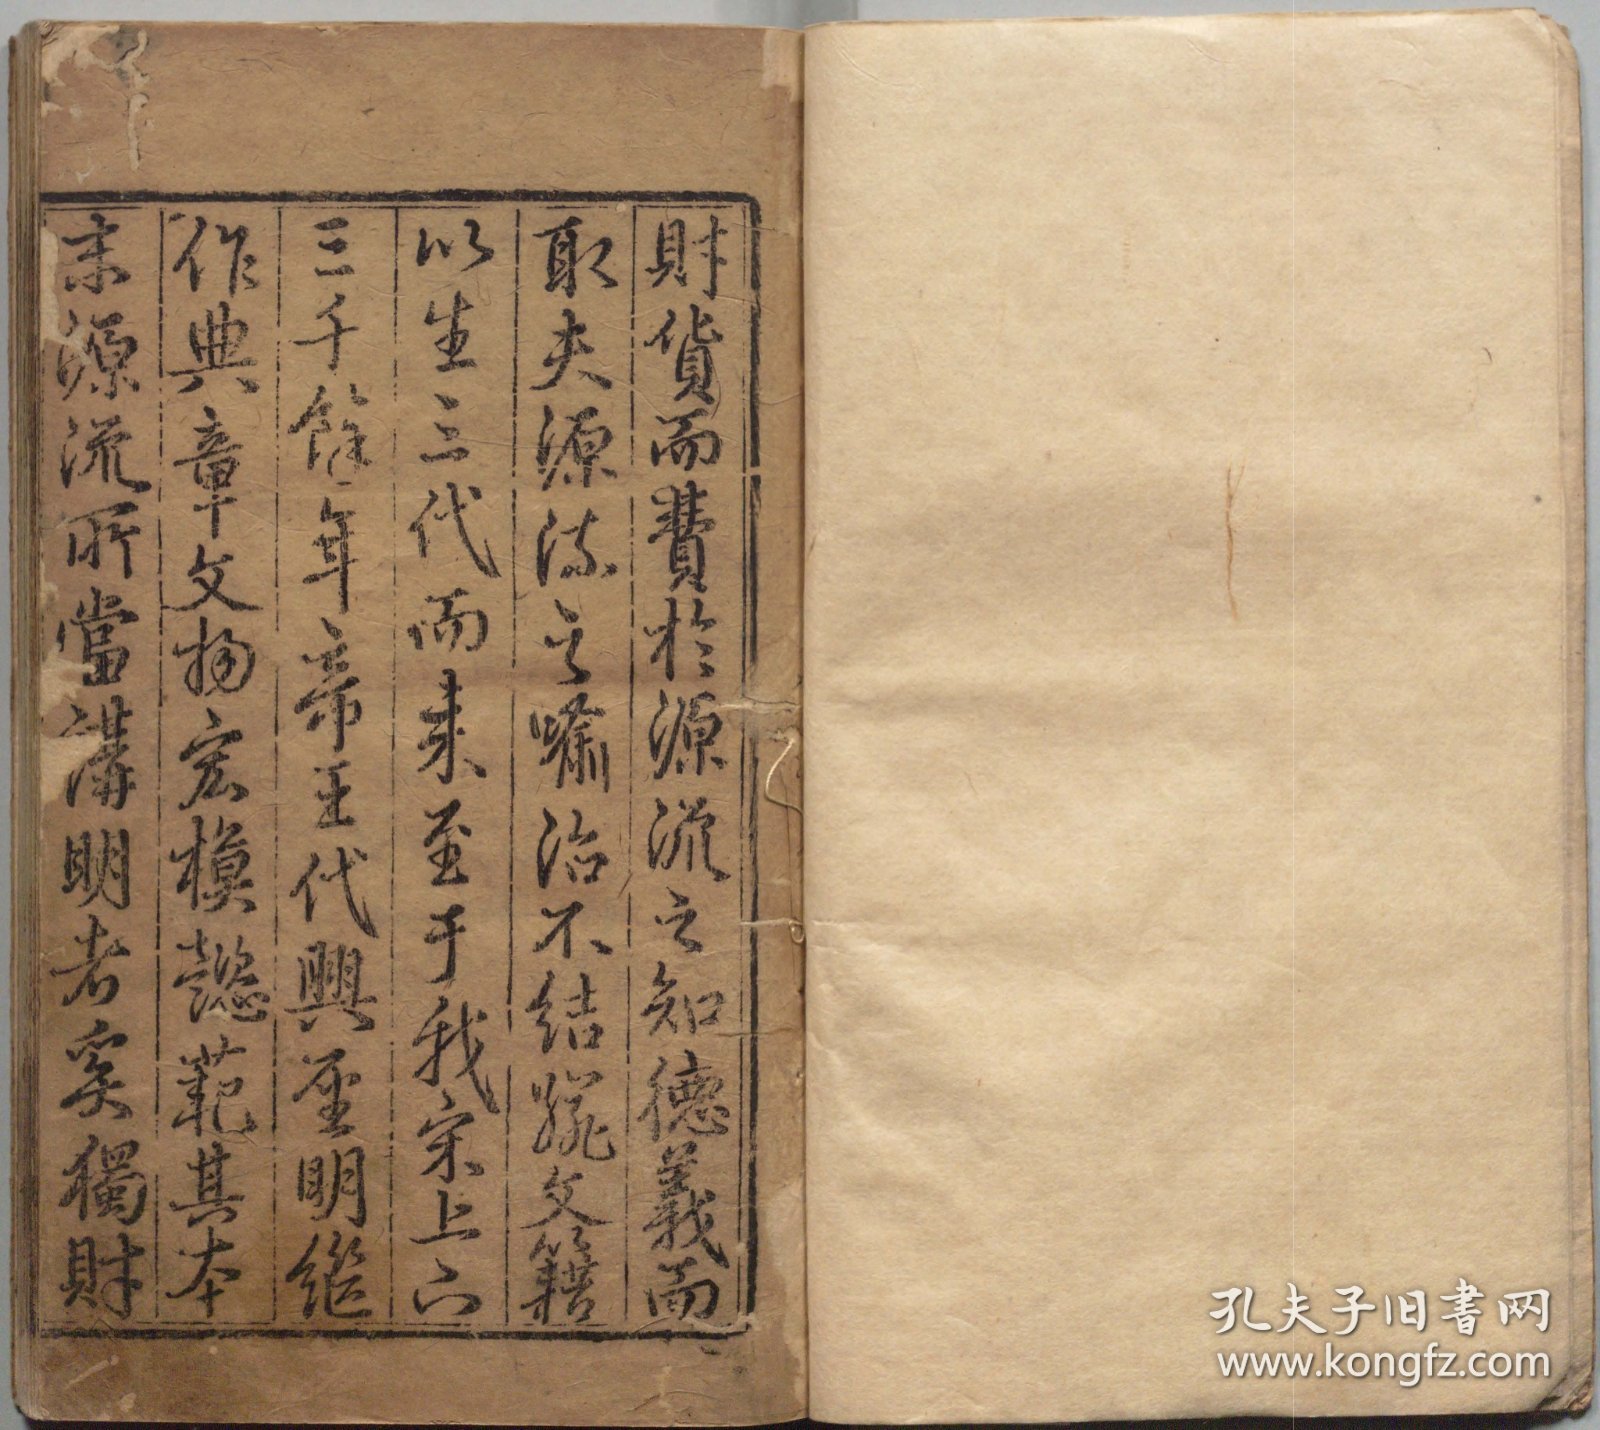 財貨而費於源流之知德義而
取夫源流之喻治不結蹤文籍
以生三代而來至于我宋上下
三千餘年帝王代興聖明繼
作典章文物宏模懿範其本
末源流所當講明者奚獨財
孔夫子旧书网
www.kongfz.com